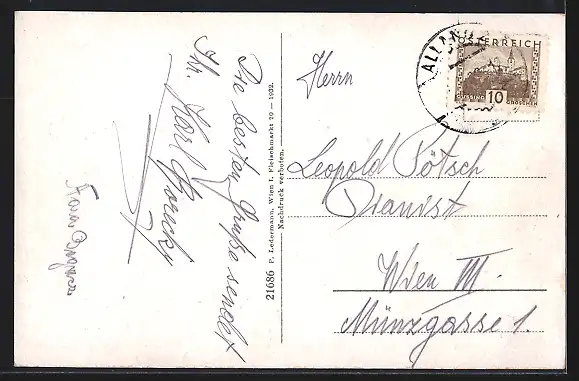 Die besten Grüße sendet
Ihr. Karl
21686 P. Ledermann, Wien I. Fleischmarkt 20 — 1932.
Nachdruck verboten.
ÖSTERREICH
GÜSSING 10 GROSCHEN
Herrn
Leopold Pötsch
Pianist
Wien III.
Münzgasse 1.